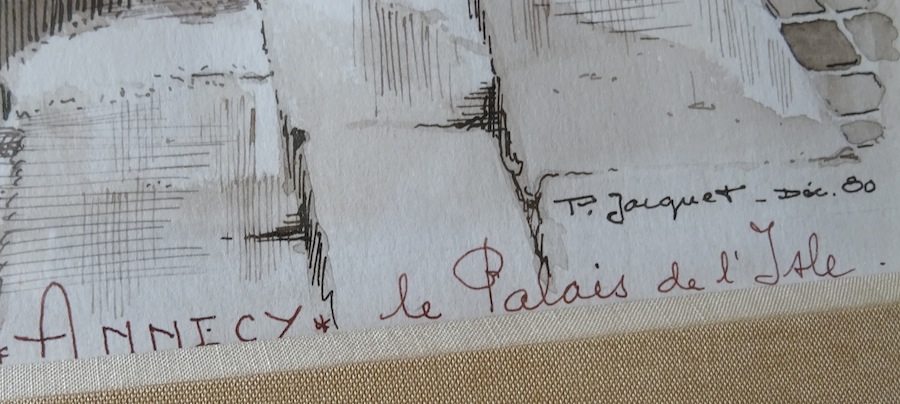 P. Jacquet - Déc. 80
* ANNECY * le Palais de l'Isle.